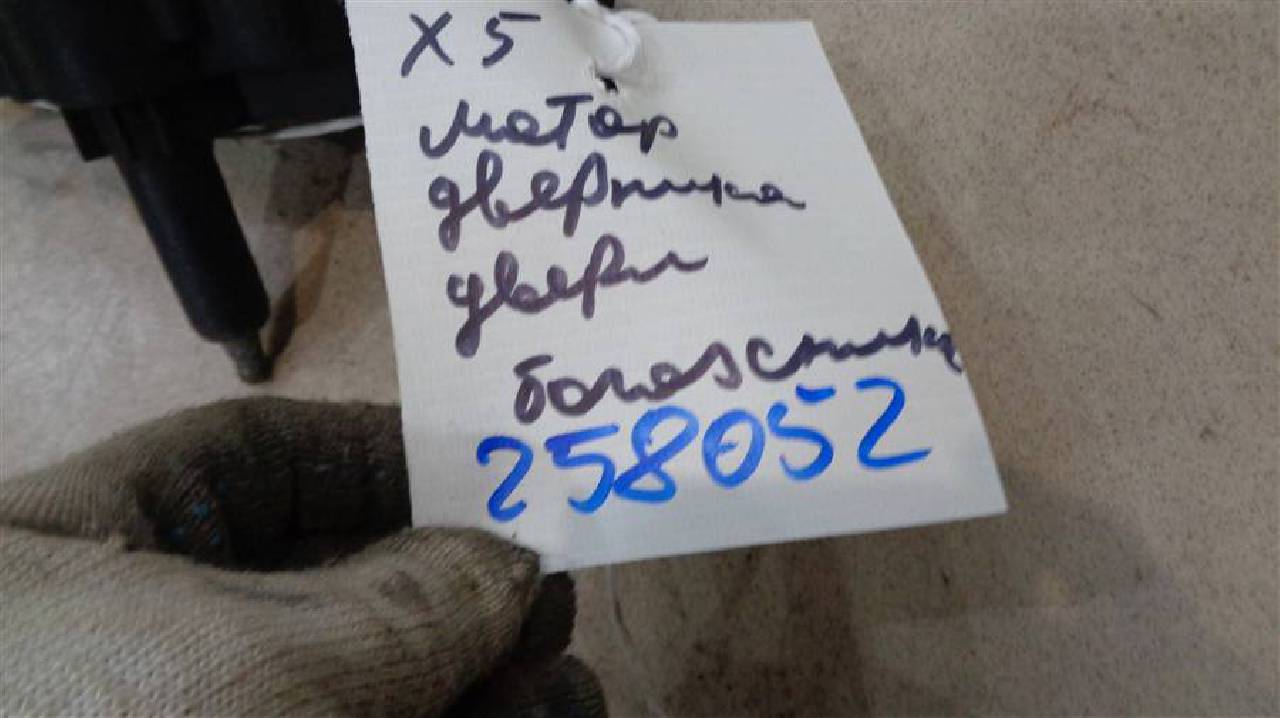 X5
мотор
дверника
двери
богажника
258052